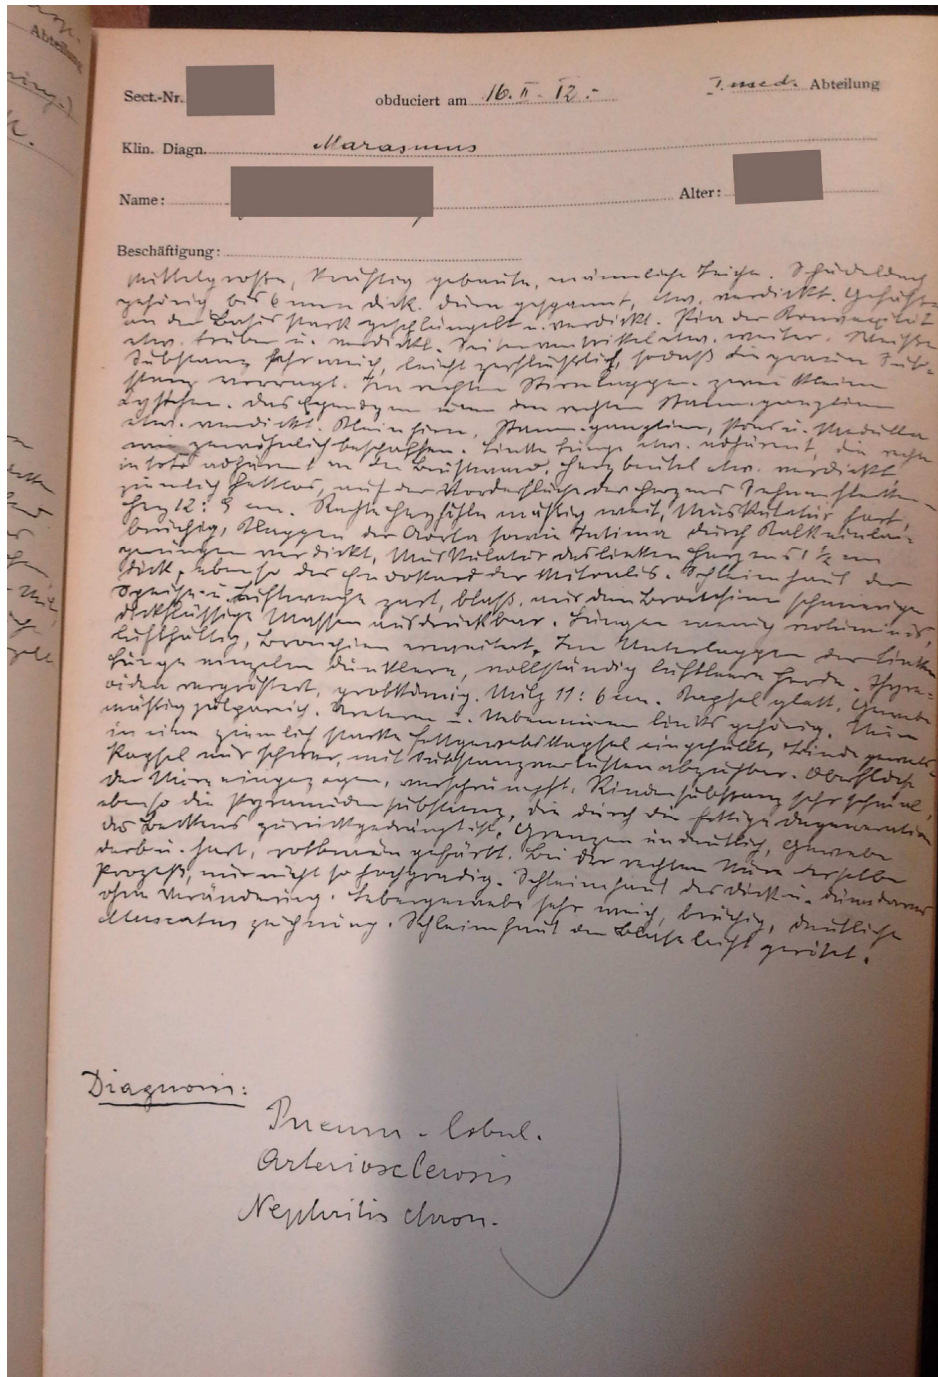 Abteilung
Sect.-Nr. obduciert am 16. II. 12.- I. med. Abteilung
Klin. Diagn. Marasmus
Name: Alter:
Beschäftigung:
Mittelgroße, kräftig gebaute, männliche Leiche. Schädeldach
gehörig bis 6 mm dick. Dura gespannt, etw. verdickt. Gefäße
an der Basis stark geschlängelt u. verdickt. Pia der Konvexität
etw. trüber u. verdickt. Seitenventrikel etw. weiter. Weiße
Substanz sehr weich, leicht zerfließlich, sodaß die graue Sub-
stanz vorragt. Im rechten Stirnlappen zwei kleine
Zystchen. Das Ependym über den rechten Stammganglien
etw. verdickt. Kleinhirn, Stammganglien, Pons u. Medulla
wie gewöhnlich beschaffen. Linke Lunge etw. adhärent, die rechte
in toto adhärent an der Brustwand, Herzbeutel etw. verdickt
ziemlich fettlos, auf der Vorderfläche des Herzens Sehnenflecken
Herz 12:9 cm. Rechte Herzhöhle mäßig weit, Muskulatur hart,
brüchig, Klappen der Aorta sowie Intima durch Kalkeinlage-
rungen verdickt, Muskulatur des linken Herzens 1 1/2 cm
dick, ebenso das Endokard der Mitralis. Schleimhaut der
Speise- u. Luftwege zart, blaß, aus den Bronchien schmierige
dickflüssige Massen ausdrückbar. Lungen wenig voluminös,
lufthältig, Bronchien erweitert. Im Unterlappen der linken
Lunge einzelne dunklere, vollständig luftleere Herde. Thyre-
oidea vergrößert, grobkörnig. Milz 11:6 cm. Kapsel glatt, Gewebe
mäßig pulpareich. Ureteren u. Nebennieren links gehörig. Niere
in eine ziemlich starke Fettgewebskapsel eingehüllt,
Kapsel nur schwer, mit Substanzverlusten abziehbar. Oberfläche
der Niere eingezogen, verschrumpft. Rindensubstanz sehr schmal,
ebenso die Pyramidensubstanz, die durch die fettige Degeneration
des Beckens zurückgedrängt ist, Grenzen undeutlich, Gewebe
derb u. hart, rotbraun gefärbt. Bei der rechten Niere derselbe
Prozeß, nur nicht so hochgradig. Schleimhaut des Dick u. Dünndarms
ohne Veränderung. Lebergewebe sehr weich, brüchig, deutliche
Muscatnuszeichnung. Schleimhaut der Blase leicht gerötet.
Diagnosis:
Pneum. lobul.
Arteriosclerosis
Nephritis chron.